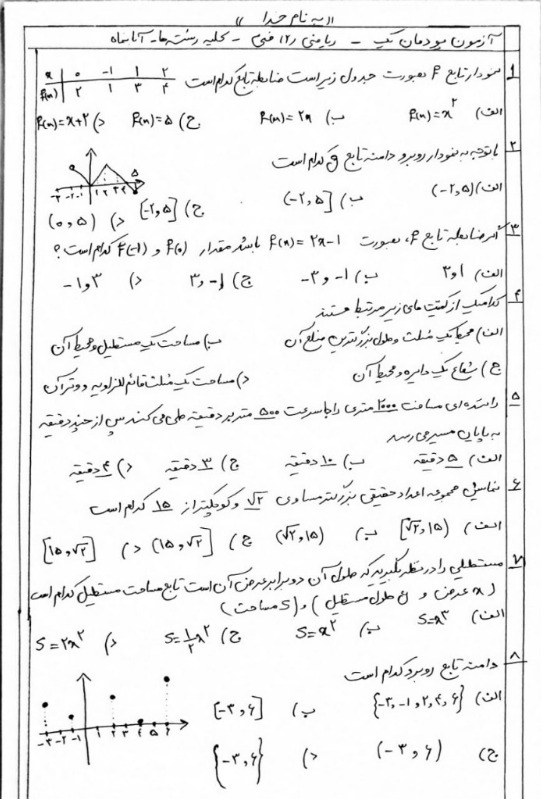 ((به نام خدا))
آزمون پودمان یک - ریاضی ۲ فنی - کلیه رشته ها -
۱ نمودار تابع f بصورت جدول زیر است ضابطه تابع کدام است
x 0 -1 1 2
f(x) 2 1 3 4
الف) f(x)=x² ب) f(x)=2x ج) f(x)=5 د) f(x)=x+2
۲ باتوجه به نمودار روبرو دامنه تابع g کدام است
-3 -2 -1 1 2 3 4 5
الف) (-2,5) ب) (-2,5] ج) [-2,5] د) (0,5)
۳ اگر ضابطه تابع f، بصورت f(x)=2x-1 باشد مقدار f(0) و f(-1) کدام است؟
الف) 1 و 3 ب) -1 و -3 ج) -1 و 3 د) 3 و -1
۴ کدامیک از کمیت های زیر مرتبط هستند
الف) محیط یک مثلث و طول بزرگترین ضلع آن ب) مساحت یک مستطیل و محیط آن
ج) شعاع یک دایره و محیط آن د) مساحت یک مثلث قائم الزاویه و وتر آن
۵ راننده ای مسافت 2000 متری را با سرعت 500 متر بر دقیقه طی می کند پس از چند دقیقه
به پایان مسیر می رسد
الف) 5 دقیقه ب) 10 دقیقه ج) 3 دقیقه د) 4 دقیقه
۶ نمایش مجموعه اعداد حقیقی بزرگتر مساوی √2 و کوچکتر از 15 کدام است
الف) [√2,15) ب) (√2,15) ج) (15,√2] د) [15,√2]
۷ مستطیلی را در نظر بگیرید که طول آن دو برابر عرض آن است تابع مساحت مستطیل کدام است
(x عرض و y طول مستطیل) و (S مساحت)
الف) S=x³ ب) S=x² ج) S=½x² د) S=2x²
۸ دامنه تابع روبرو کدام است
الف) {-3,-1,2,4,6} ب) [-3,6]
-3 -2 -1 1 2 3 4 5 6
ج) (-3,6) د) {-3,6}